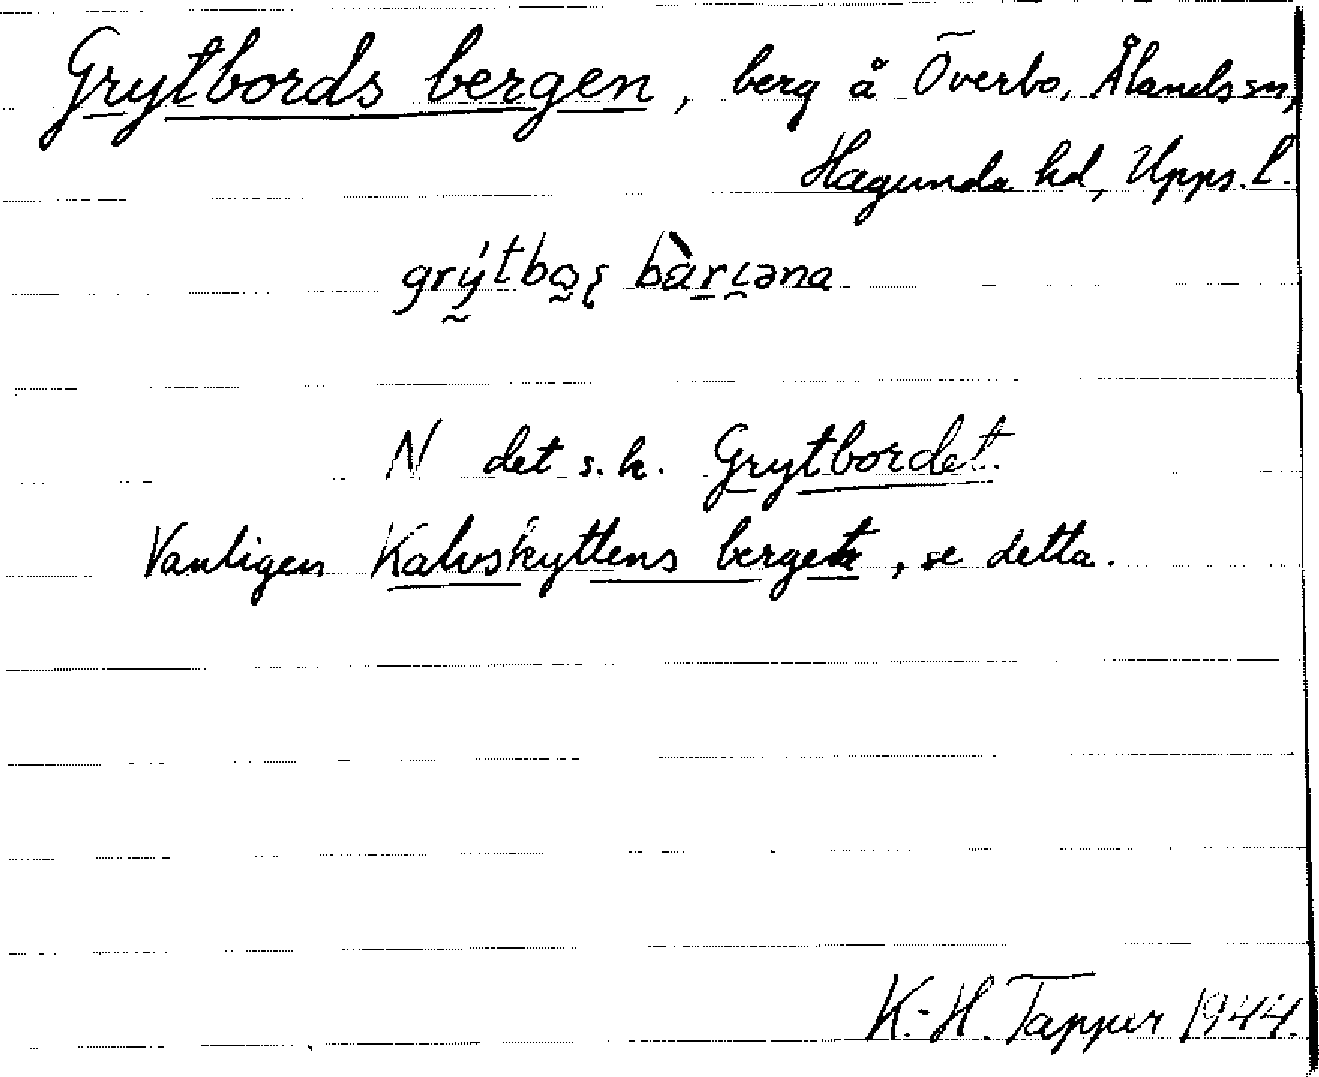 Grytbords bergen, berg å Överbo, Ålands sn,
Hagunda hd, Upps. l.
N det s.k. Grytbordet.
Vanligen Kalvskyttens berget, se detta.
K.-H. Tapper 1944.